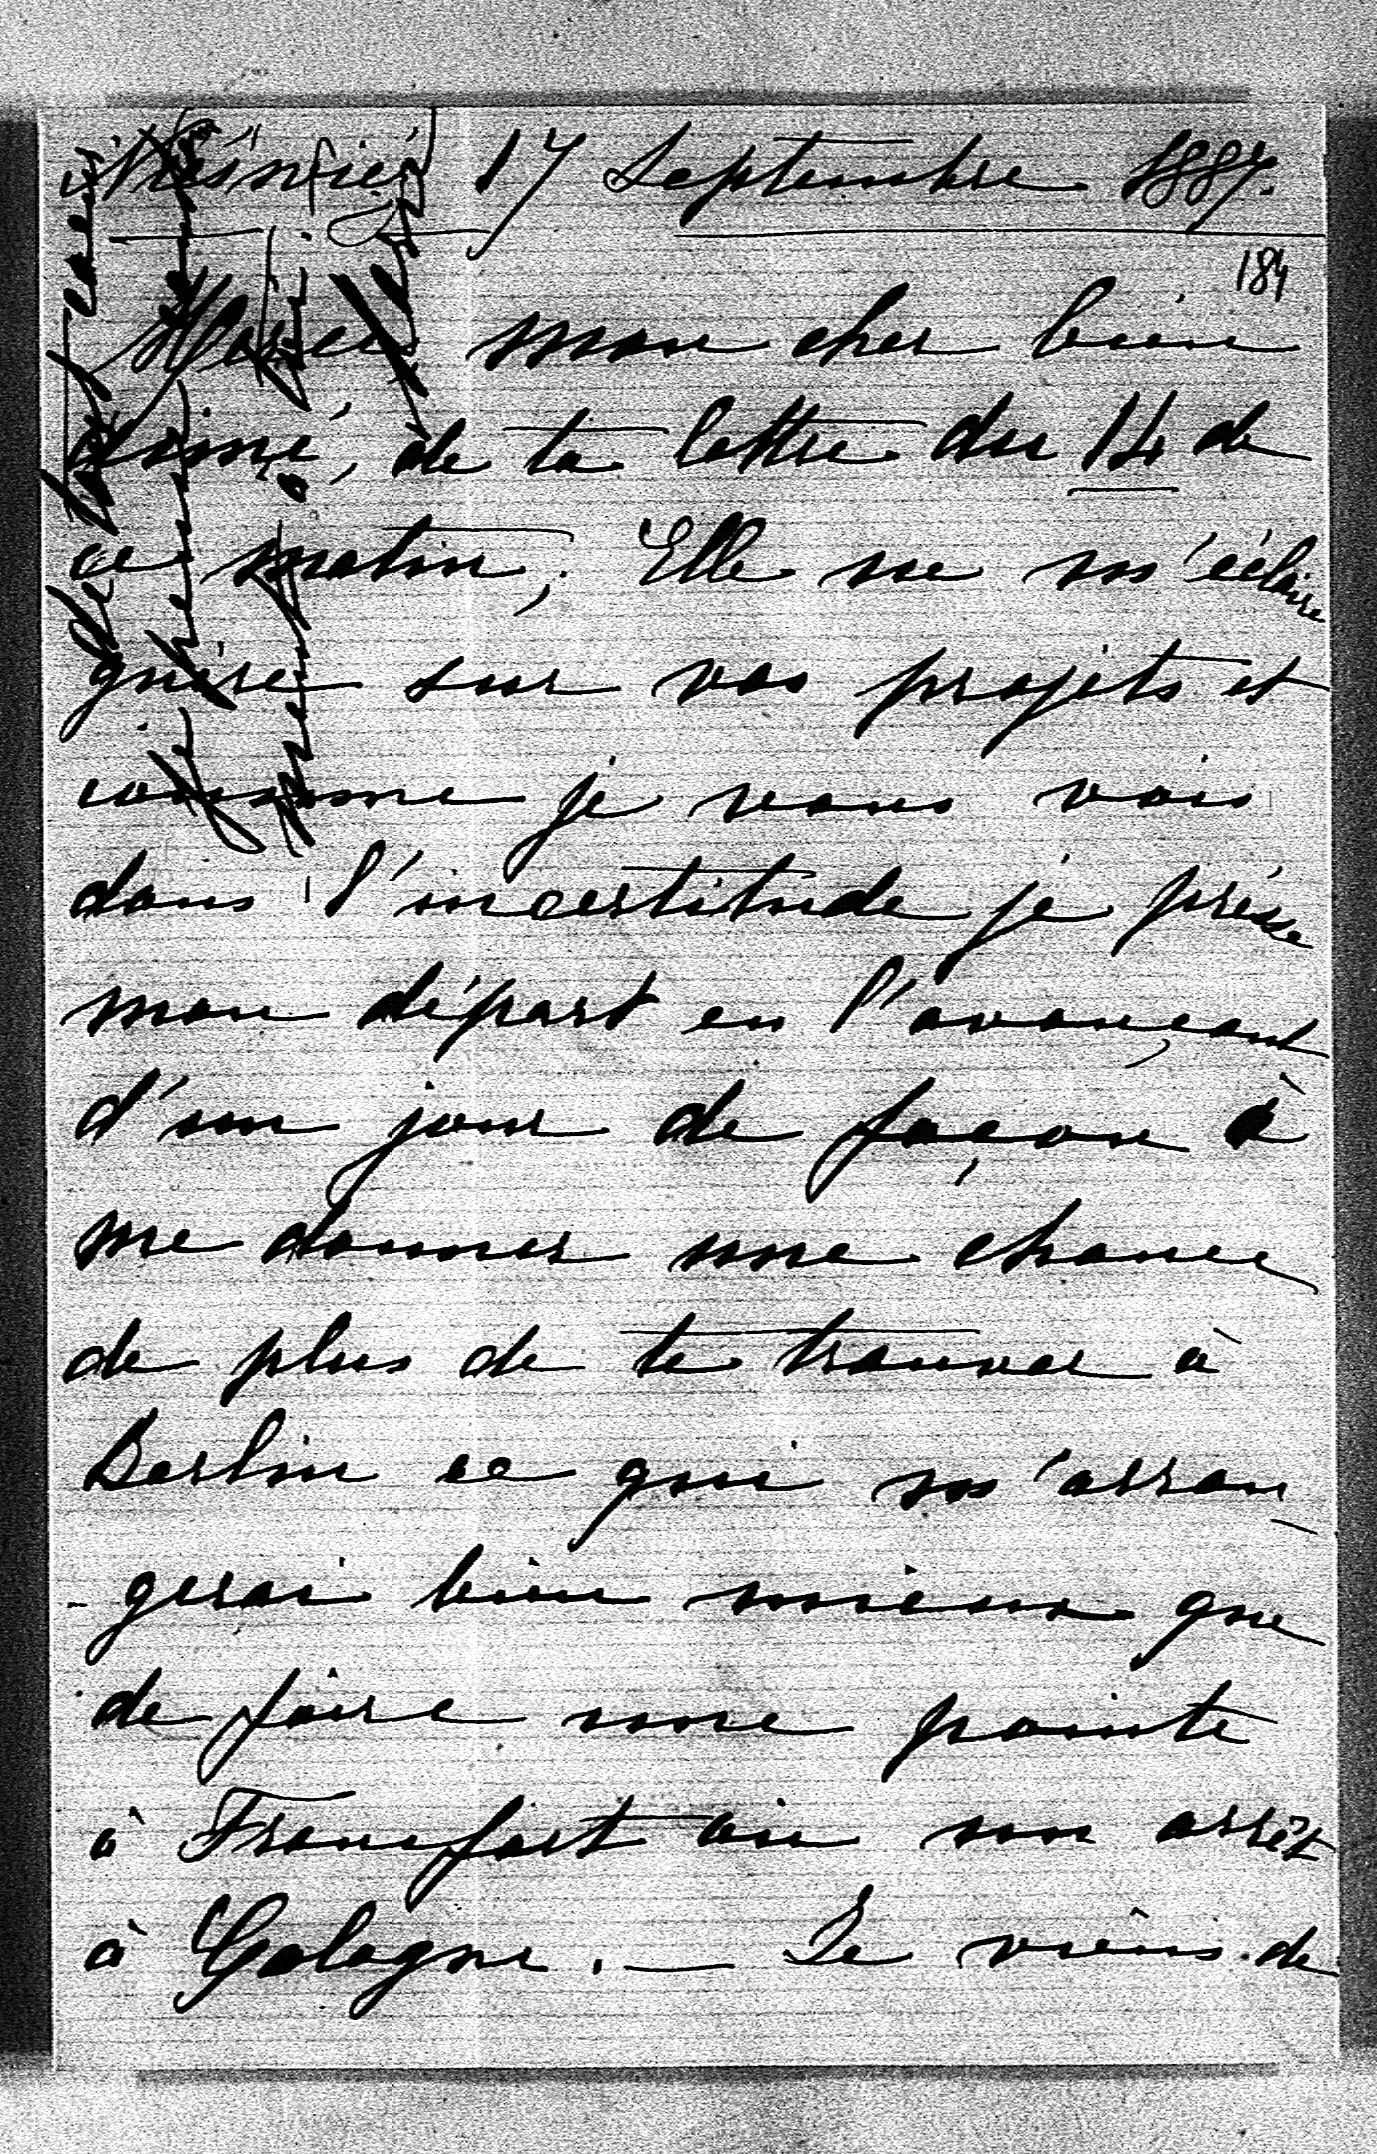 17 Septembre 1887.
184
Merci mon cher bien
aimé, de ta lettre du 14 de
ce matin, Elle ne m'éclaire
guère sur vos projets et
comme je vous vois
dans l'incertitude je présse
mon départ en l'avançant
d'un jour de façon à
me donner une chance
de plus de te trouver à
Berlin ce qui m'arran-
-gerai bien mieux que
de faire une pointe
à Francfort ou un arrêt
à Cologne. — Je viens de